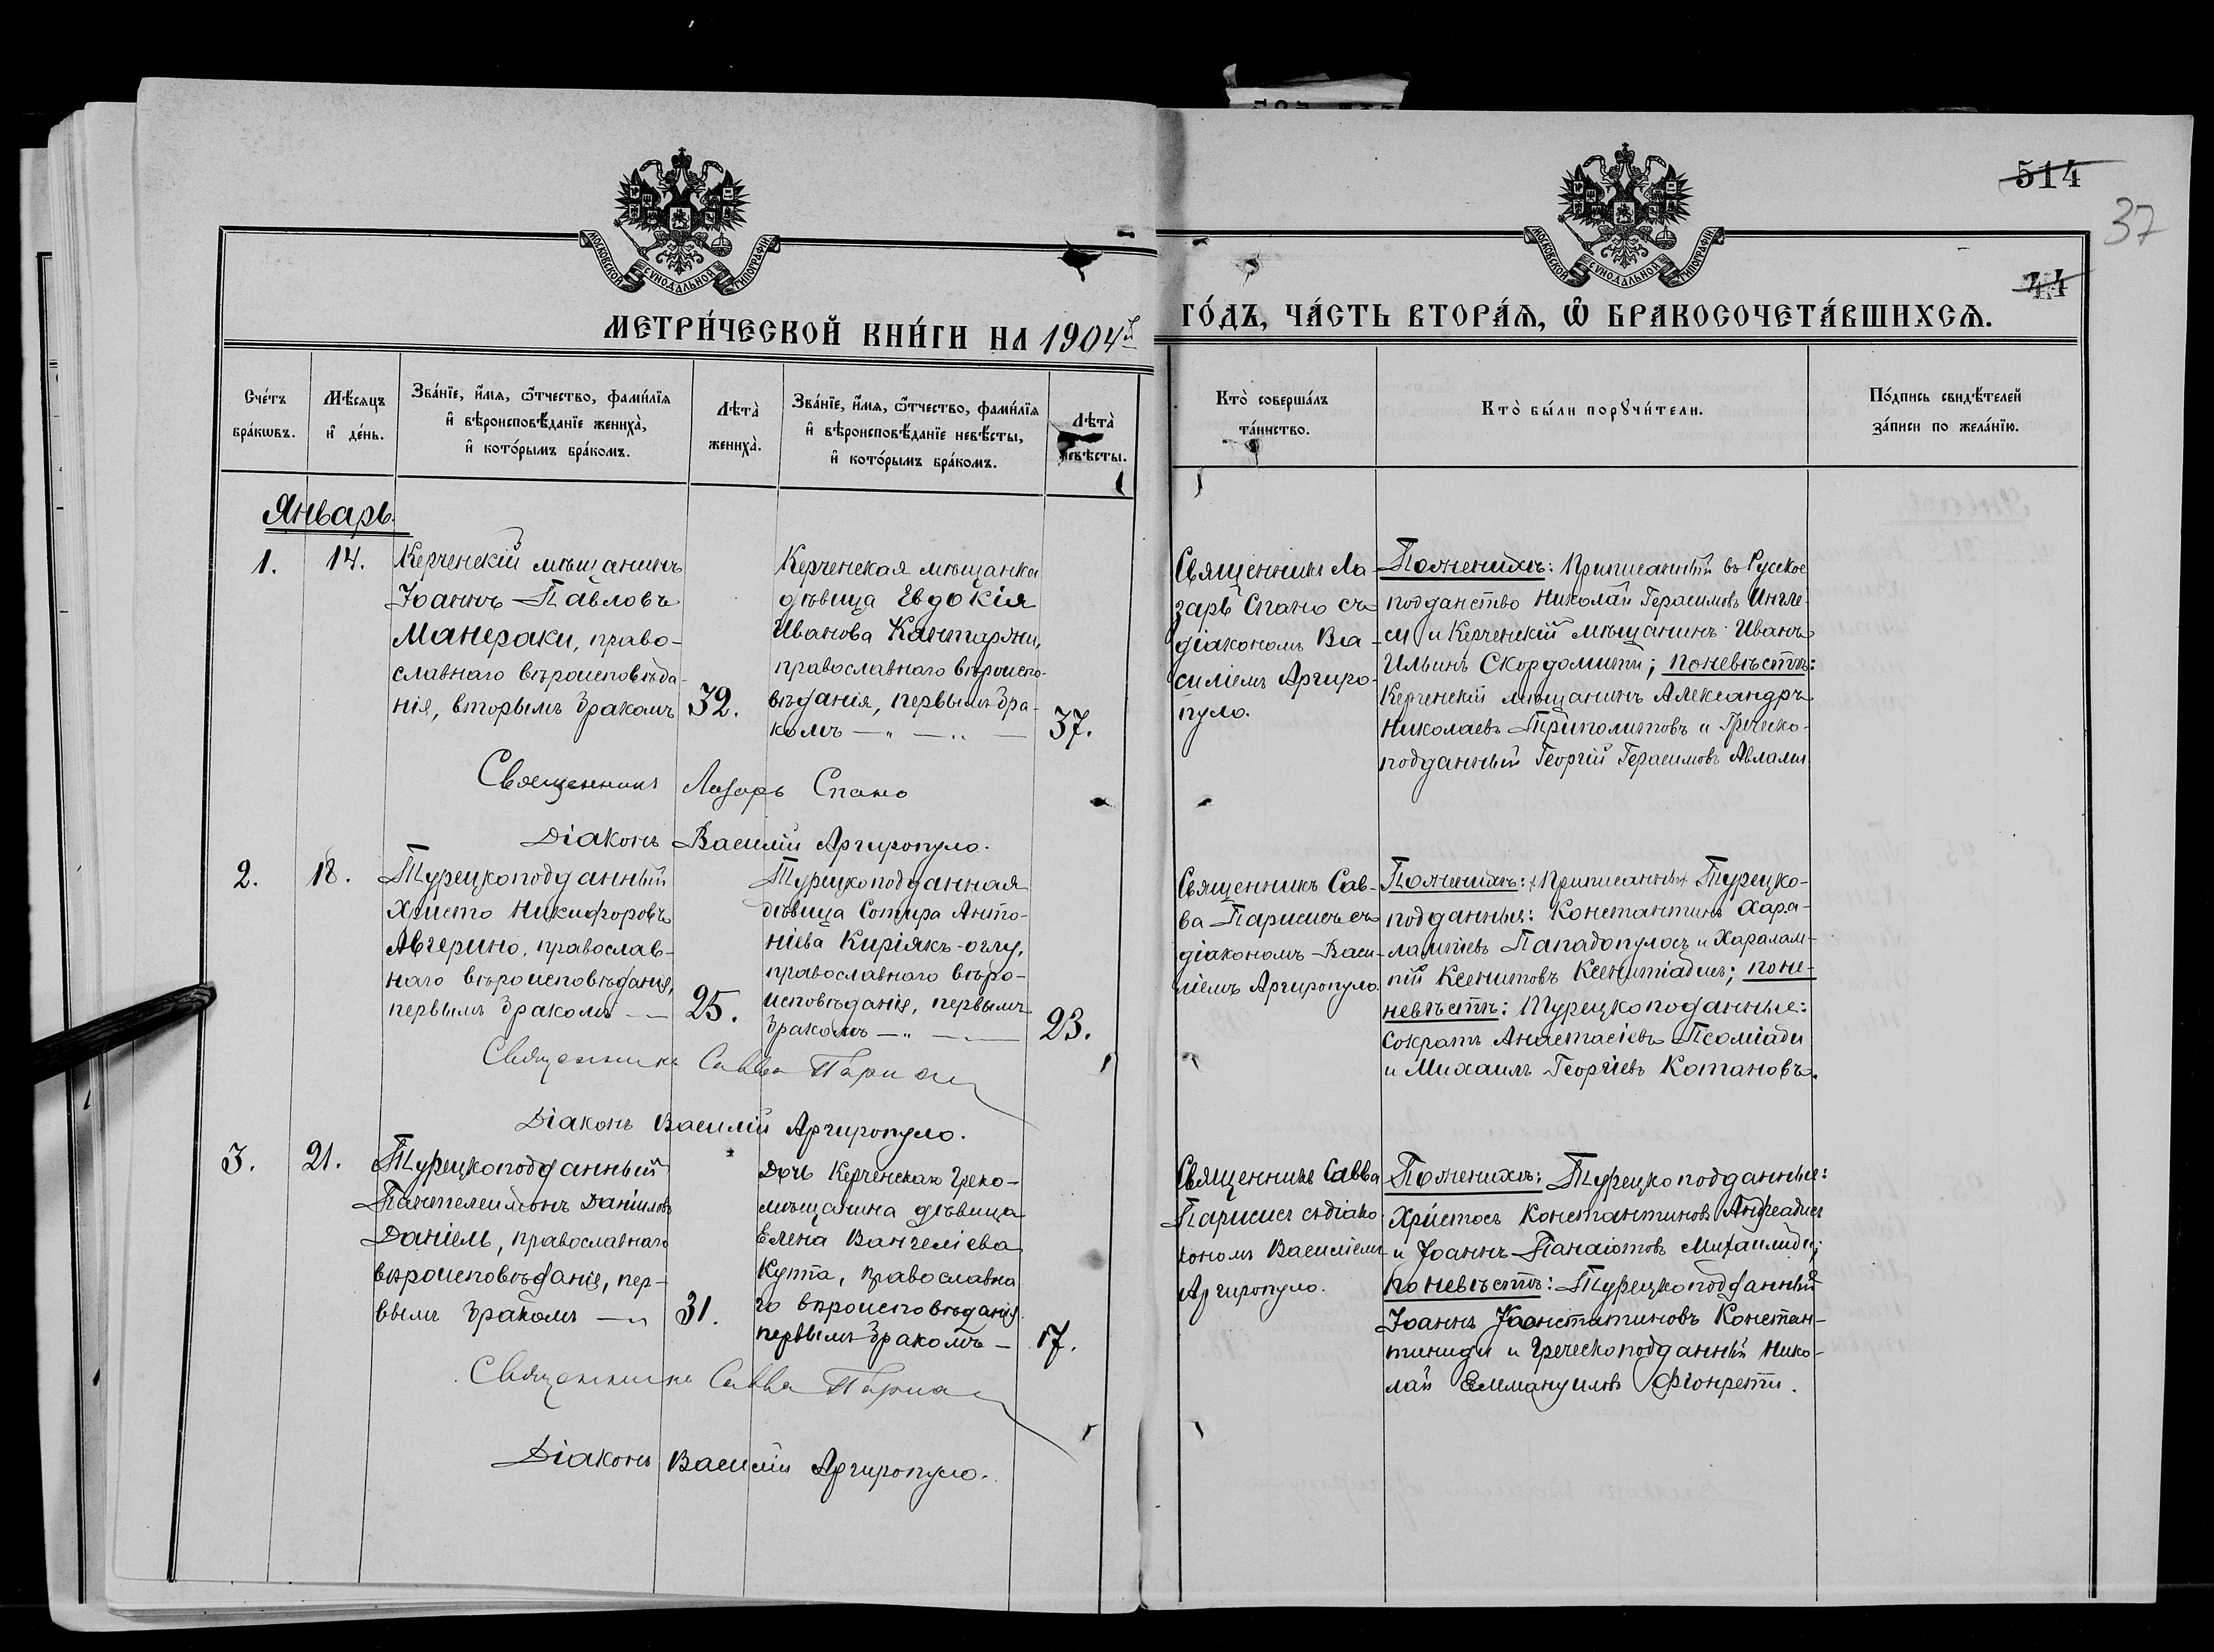 514
37
44
МОСКОВСКОЙ СѴНОДАЛЬНОЙ ТИПОГРАФІИ
МОСКОВСКОЙ СѴНОДАЛЬНОЙ ТИПОГРАФІИ
МЕТРИ́ЧЕСКОЙ КНИ́ГИ НА 1904й
ГО́ДЪ, ЧА́СТЬ ВТОРА́Ѧ, Ѽ БРАКОСОЧЕТА́ВШИХСѦ.
Сче́тъ бра́кѡвъ.
Мѣ́сяцъ и҆ де́нь.
Зва́нїе, и҆́мѧ, ѻ҆́тчество, фами́лїѧ
и҆ вѣроисповѣ́данїе жениха̀,
и҆ кото́рымъ бра́комъ.
Лѣта̀ жениха̀.
Зва́нїе, и҆́мѧ, ѻ҆́тчество, фами́лїѧ
и҆ вѣроисповѣ́данїе невѣ́сты,
и҆ кото́рымъ бра́комъ.
Лѣта̀ невѣ́сты.
Кто̀ соверша́лъ та́инство.
Кто̀ бы́ли порꙋчи́тели.
По́дпись свидѣ́телей
за́писи по жела́нїю.
Январь.
1.
14.
Керченскій мѣщанинъ
Іоаннъ Павловъ
Манераки, право-
славнаго вѣроисповѣда-
нія, вторымъ бракомъ
32.
Керченская мѣщанка
дѣвица Евдокія
Иванова Кантаржи,
православнаго вѣроиспо-
вѣданія, первымъ бра-
комъ — " — " —
37.
Священникъ Ла-
зарь Спано съ
діакономъ Ва-
силіемъ Аргиро-
пуло.
По женихѣ: Приписанный въ Русское
подданство Николай Герасимовъ Ингле-
си и Керченскій мѣщанинъ Иванъ
Ильинъ Скордомити; по невѣстѣ:
Керченскій мѣщанинъ Александръ
Николаевъ Триполитовъ и Греческо-
подданный Георгій Герасимовъ Авлами
Священникъ Лазарь Спано
Діаконъ Василій Аргиропуло.
2.
18.
Турецкоподданный
Христо Никифоровъ
Авгерино, православ-
наго вѣроисповѣданія,
первымъ бракомъ —
25.
Турецкоподданная
дѣвица Сотира Анто-
ніева Киріякъ-оглу,
православнаго вѣро-
исповѣданія, первымъ
бракомъ — " —
23.
Священникъ Сав-
ва Парисисъ съ
діакономъ Васи-
ліемъ Аргиропуло.
По женихѣ: Приписанный Турецко-
подданные: Константинъ Хара-
лампіевъ Пападопулосъ и Харалам-
пій Ксенитовъ Ксенитіадисъ; по не-
невѣстѣ: Турецкоподанные:
Сократъ Анастасіевъ Псоміади
и Михаилъ Георгіевъ Котановъ.
Священникъ Савва Парисисъ
Діаконъ Василій Аргиропуло.
3.
21.
Турецкоподданный
Пантелеимонъ Даніиловъ
Даніель, православнаго
вѣроисповѣданія, пер-
вымъ бракомъ — "
31.
Дочь Керченскаго Греко-
мѣщанина дѣвица
Елена Вангеліева
Куппа, православна-
го вѣроисповѣданія
первымъ бракомъ —
17.
Священникъ Савва
Парисисъ съ діако-
кономъ Василіемъ
Аргиропуло.
По женихѣ: Турецкоподданные:
Христосъ Константиновъ Андреадисъ
и Іоаннъ Панаіотовъ Михаилиди;
по невѣстѣ: Турецкоподданный
Іоаннъ Константиновъ Констан-
тиниди и Греческоподданный Нико-
лай Еммануиловъ Фіонрети.
Священникъ Савва Парисисъ
Діаконъ Василій Аргиропуло.